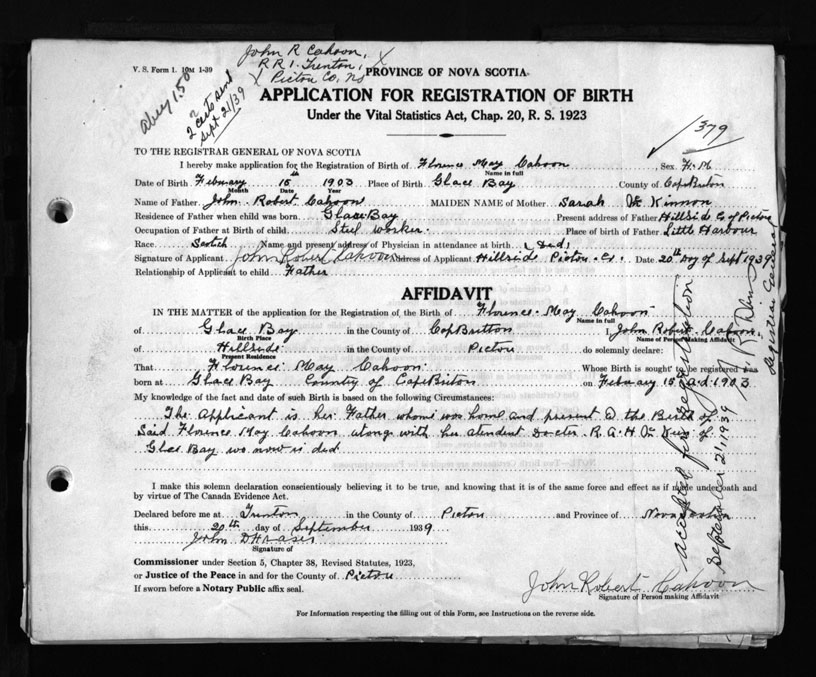 John R Cahoon,
R R 1. Trenton,
X Pictou Co, NS X
V. S. Form 1. 10M 1-39
2 certs send
Sept 21/39
PROVINCE OF NOVA SCOTIA
APPLICATION FOR REGISTRATION OF BIRTH
Under the Vital Statistics Act, Chap. 20, R. S. 1923
1379
TO THE REGISTRAR GENERAL OF NOVA SCOTIA
I hereby make application for the Registration of Birth of Florence May Cahoon Sex F.M
Name in full
Date of Birth February 15th 1903 Place of Birth Glace Bay County of Cap Briton
Month Date Year
Name of Father John Robert Cahoon MAIDEN NAME of Mother Sarah Mc Kinnon
Residence of Father when child was born Glace Bay Present address of Father Hillside Co of Pictou
Occupation of Father at Birth of child Steel Worker Place of birth of Father Little Harbour
Race Scotich Name and present address of Physician in attendance at birth (Ded)
Signature of Applicant John Robert Cahoon Address of Applicant Hillside Pictou Co. Date 20th Day of Sept 1939
Relationship of Applicant to child Father
AFFIDAVIT
IN THE MATTER of the application for the Registration of the Birth of Florence May Cahoon
Name in full
of Glace Bay in the County of Cap Britton I, John Robert Cahoon
Birth Place Name of Person Making Affidavit
of Hillside in the County of Pictou do solemnly declare:
Present Residence
That Florence May Cahoon Whose Birth is sought to be registered was
born at Glace Bay Country of Cape Briton on February 15 A.d. 1903
My knowledge of the fact and date of such Birth is based on the following Circumstances:
The Applicant is her Father whome was home and present @ the Birth of
Said Florence May Cahoon along with her atendent Docter R. A. H. Mc
Glace Bay wo now is ded
I make this solemn declaration conscientiously believing it to be true, and knowing that it is of the same force and effect as if made under oath and
by virtue of The Canada Evidence Act.
Declared before me at Trenton in the County of Pictou and Province of Nova Scotia
this 20th day of September 1939
John D Fraser
Signature of
Commissioner under Section 5, Chapter 38, Revised Statutes, 1923,
or Justice of the Peace in and for the County of Pictou
If sworn before a Notary Public affix seal.
John Robert Cahoon
Signature of Person making Affidavit
For Information respecting the filling out of this Form, see Instructions on the reverse side.
accepted for registration
September 21, 1939
Registrar General